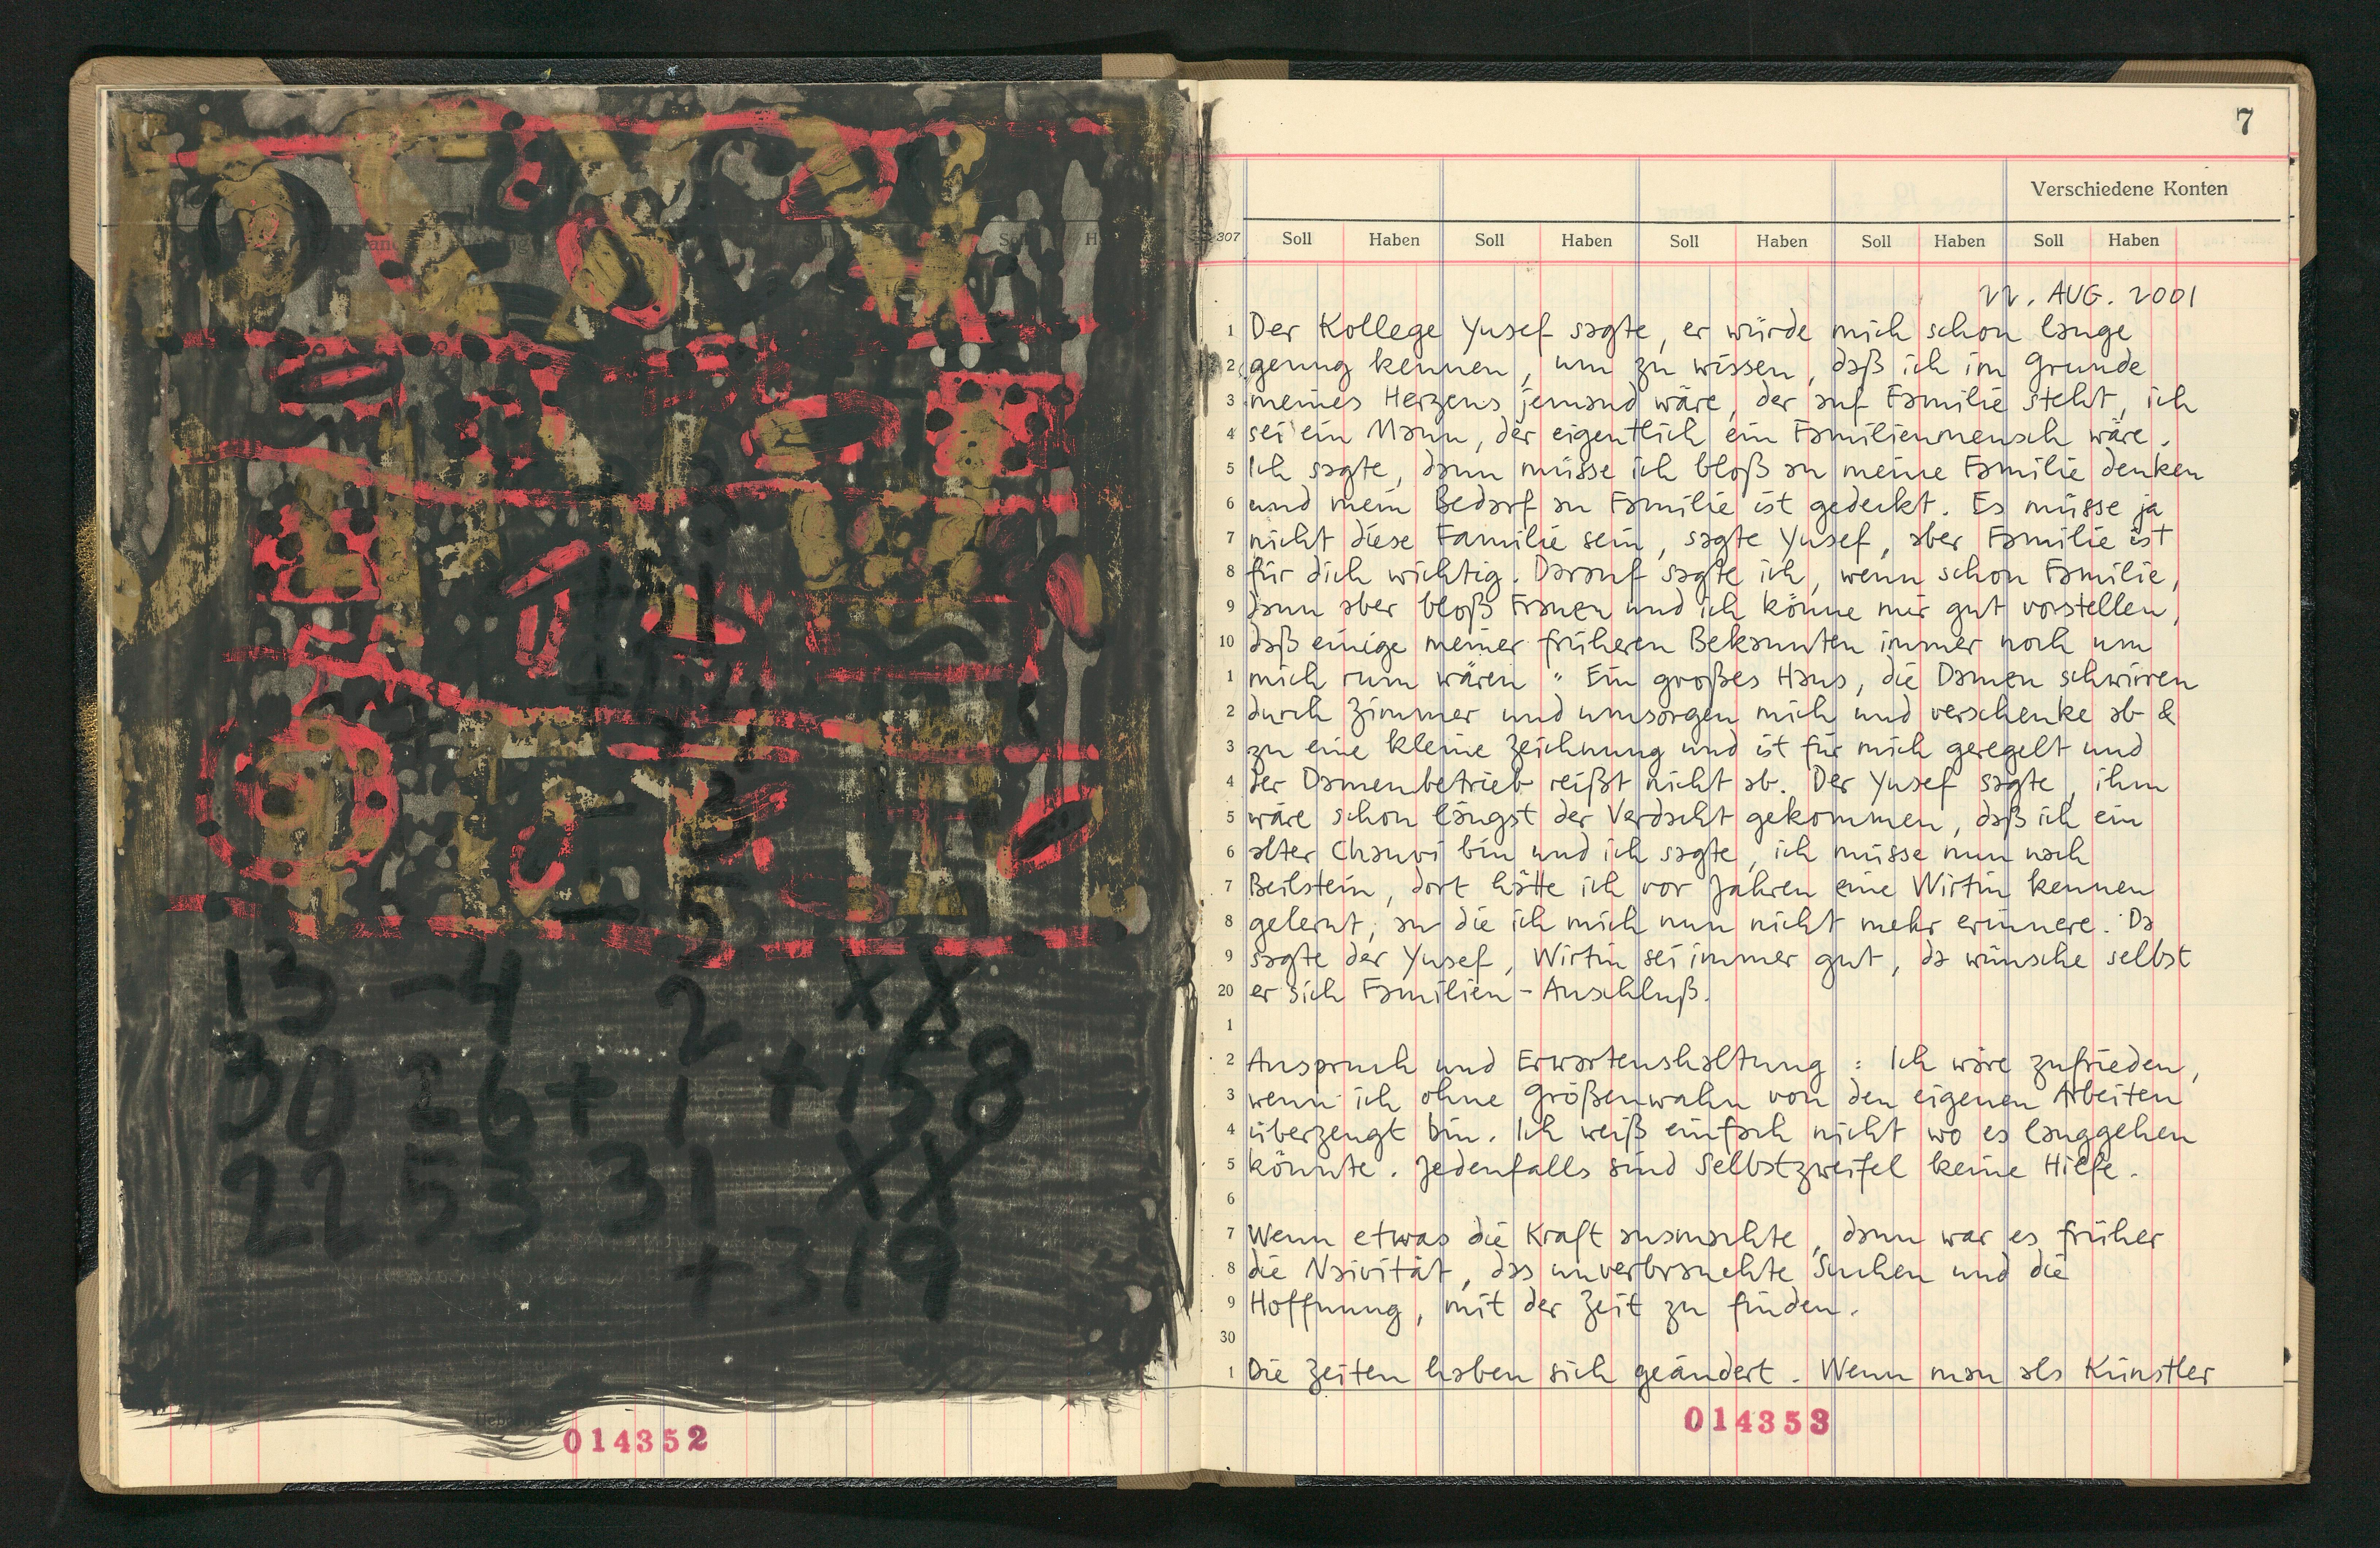 13 -4 2 XX
30 26 + 1 + 158
22 53 31 XX
+ 319
014352
7
Verschiedene Konten
307 Soll Haben Soll Haben Soll Haben Soll Haben Soll Haben
22. AUG. 2001
1 Der Kollege Yusef sagte, er würde mich schon lange
2 genug kennen, um zu wissen, daß ich im Grunde
3 meines Herzens jemand wäre, der auf Familie steht, ich
4 sei ein Mann, der eigentlich ein Familienmensch wäre.
5 Ich sagte, dann müsse ich bloß an meine Familie denken
6 und mein Bedarf an Familie ist gedeckt. Es müsse ja
7 nicht diese Familie sein, sagte Yusef, aber Familie ist
8 für dich wichtig. Darauf sagte ich, wenn schon Familie,
9 dann aber bloß Frauen und ich könne mir gut vorstellen,
10 daß einige meiner früheren Bekannten immer noch um
1 mich rum wären. Ein großes Haus, die Damen schwirren
2 durch Zimmer und umsorgen mich und verschenke ab &
3 zu eine kleine Zeichnung und ist für mich geregelt und
4 der Damenbetrieb reißt nicht ab. Der Yusef sagte, ihm
5 wäre schon längst der Verdacht gekommen, daß ich ein
6 alter Chauvi bin und ich sagte, ich müsse nun nach
7 Beilstein, dort hätte ich vor Jahren eine Wirtin kennen
8 gelernt, an die ich mich nun nicht mehr erinnere. Da
9 sagte der Yusef, Wirtin sei immer gut, da wünsche selbst
20 er sich Familien-Anschluß.
1
2 Anspruch und Erwartenshaltung : Ich wäre zufrieden,
3 wenn ich ohne Größenwahn von den eigenen Arbeiten
4 überzeugt bin. Ich weiß einfach nicht wo es langgehen
5 könnte. Jedenfalls sind Selbstzweifel keine Hilfe.
6
7 Wenn etwas die Kraft ausmachte, dann war es früher
8 die Naivität, das unverbrauchte Suchen und die
9 Hoffnung, mit der Zeit zu finden.
30
1 Die Zeiten haben sich geändert. Wenn man als Künstler
014353